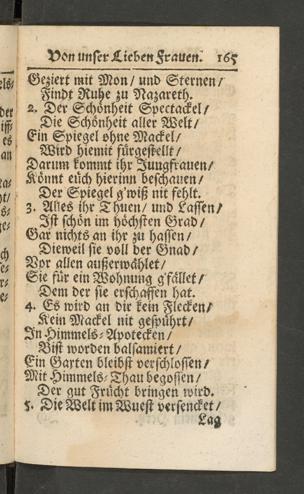 Von unser Lieben Frauen. 165
Geziert mit Mon/ und Sternen/
Findt Ruhe zu Nazareth.
2. Der Schönheit Spectackel/
Die Schönheit aller Welt/
Ein Spiegel ohne Mackel/
Wird hiemit fürgestellt/
Darum kommt ihr Jungfrauen/
Könnt euch hierinn beschauen/
Der Spiegel g'wiß nit fehlt.
3. Alles ihr Thuen/ und Lassen/
Ist schön im höchsten Grad/
Gar nichts an ihr zu hassen/
Dieweil sie voll der Gnad/
Vor allen außerwählet/
Sie für ein Wohnung g'fället/
Dem der sie erschaffen hat.
4. Es wird an die kein Flecken/
Kein Mackel nit gespührt/
In Himmels-Apotecken/
Bist worden balsamiert/
Ein Garten bleibst verschlossen/
Mit Himmels-Thau begossen/
Der gut Frücht bringen wird.
5. Die Welt im Wuest versencket/
Lag